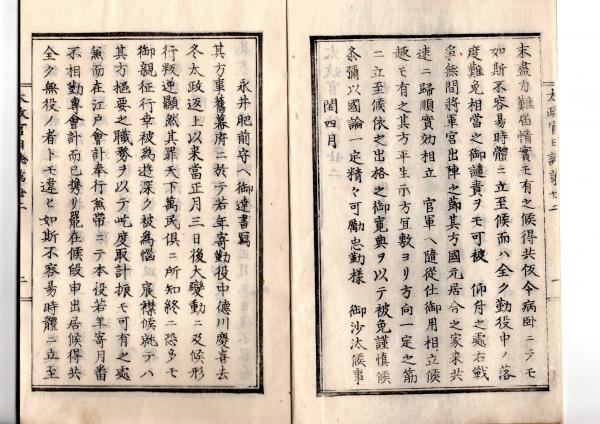 末盡力難届情實モ有之候得共仮令病臥ニテモ
如斯不容易時體ニ立至候而ハ全ク勤役中ノ落
度難免相當之御譴責ヲモ可被　仰付之處右戦
争無間將軍宮出陣之節其方國元居合之家来共
速ニ歸順實効相立　官軍ヘ隨從仕御用相立候
趣モ有之其方平生示方宜敷ヨリ方向一定之筋
ニ立至候依之出格之御寛典ヲ以テ被免謹慎候
条彌以國論一定精々可勵忠勤様　御沙汰候事
閏四月
太政官日誌第廿二
永井肥前守ヘ御達書冩
其方事舊幕府ニ於テ若年寄勤役中德川慶喜去
冬太政返上以来當正月三日後大變動ニ及候形
行叛逆顯然其罪天下萬民俱ニ所知終ニ恐多モ
御親征行幸被為遊深ク被為惱　宸襟候就テハ
其方樞要之職務ヲ以テ屹度取計振モ可有之處
無而在江戸會計奉行無帶ニテ本役若年寄月番
不相勤專會計而已携リ罷在候段申出居候得共
全ク無役ノ者トモ違ヒ如斯不容易時體ニ立至
太政官日誌第廿二
二